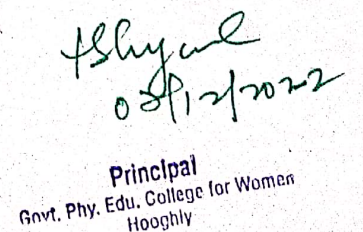 02/12/2022
Principal
Govt. Phy. Edu. College for Women
Hooghly